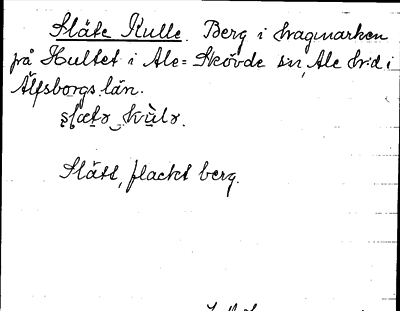 Släte Kulle. Berg i Kragmarken
på Hultet i Ale-Skövde sn, Ale hd i
Älfsborgs län.
Slätt, flackt berg.